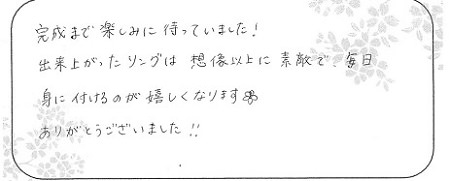 完成まで楽しみに待っていました!
出来上がったリングは想像以上に素敵で、毎日
身に付けるのが嬉しくなります
ありがとうございました!!